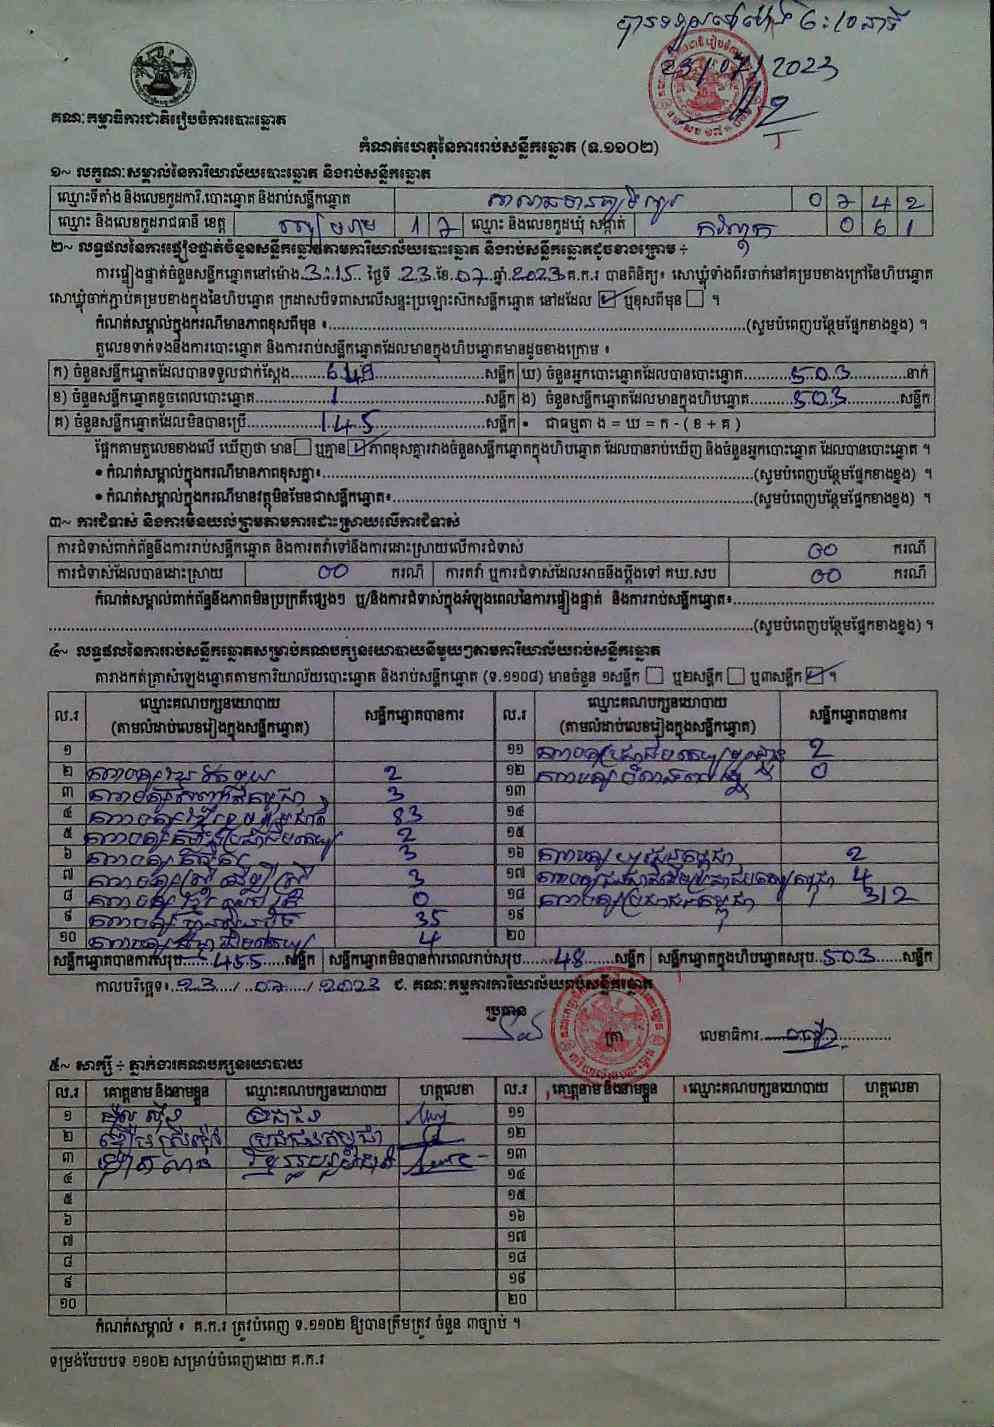 បានទទួលនៅម៉ោង ៦:១០នាទី
23/07/2023
គណៈកម្មាធិការជាតិរៀបចំការបោះឆ្នោត
កំណត់ហេតុនៃការរាប់សន្លឹកឆ្នោត (ទ.១១០២)
១~ លក្ខណៈសម្គាល់នៃការិយាល័យបោះឆ្នោត និងរាប់សន្លឹកឆ្នោត
ឈ្មោះទីតាំង និងលេខកូដការិ.បោះឆ្នោត និងរាប់សន្លឹកឆ្នោត 0 7 4 2
ឈ្មោះ និងលេខកូដរាជធានី ខេត្ត សៀមរាប 1 7 ឈ្មោះ និងលេខកូដឃុំ សង្កាត់ 0 6 1
២~ លទ្ធផលនៃការផ្ទៀងផ្ទាត់ចំនួនសន្លឹកឆ្នោតតាមការិយាល័យបោះឆ្នោត និងរាប់សន្លឹកឆ្នោតដូចខាងក្រោម ÷
ការផ្ទៀងផ្ទាត់ចំនួនសន្លឹកឆ្នោតនៅម៉ោង 3:15 ថ្ងៃទី 23 ខែ 07 ឆ្នាំ 2023 គ.ក.រ បានពិនិត្យ៖ សោឃ្លុំទាំងពីរចាក់នៅគម្របខាងក្រៅនៃហិបឆ្នោត
សោឃ្លុំចាក់ភ្ជាប់គម្របខាងក្នុងនៃហិបឆ្នោត ក្រដាសបិទពាសលើសន្ទះប្រឡោះស៊កសន្លឹកឆ្នោត នៅដដែល ☑ ឬខុសពីមុន ☐ ។
កំណត់សម្គាល់ក្នុងករណីមានភាពខុសពីមុន ៖ (សូមបំពេញបន្ថែមផ្នែកខាងខ្នង) ។
តួលេខទាក់ទងនឹងការបោះឆ្នោត និងការរាប់សន្លឹកឆ្នោតដែលមានក្នុងហិបឆ្នោតមានដូចខាងក្រោម ៖
ក) ចំនួនសន្លឹកឆ្នោតដែលបានទទួលជាក់ស្តែង 649 សន្លឹក ឃ) ចំនួនអ្នកបោះឆ្នោតដែលបានបោះឆ្នោត 503 នាក់
ខ) ចំនួនសន្លឹកឆ្នោតខូចពេលបោះឆ្នោត 1 សន្លឹក ង) ចំនួនសន្លឹកឆ្នោតដែលមានក្នុងហិបឆ្នោត 503 សន្លឹក
គ) ចំនួនសន្លឹកឆ្នោតដែលមិនបានប្រើ 145 សន្លឹក • ជាធម្មតា ង = ឃ = ក - ( ខ + គ )
ផ្អែកតាមតួលេខខាងលើ ឃើញថា មាន ☐ ឬគ្មាន ☑ ភាពខុសគ្នារវាងចំនួនសន្លឹកឆ្នោតក្នុងហិបឆ្នោត ដែលបានរាប់ឃើញ និងចំនួនអ្នកបោះឆ្នោត ដែលបានបោះឆ្នោត ។
• កំណត់សម្គាល់ក្នុងករណីមានភាពខុសគ្នា៖ (សូមបំពេញបន្ថែមផ្នែកខាងខ្នង) ។
• កំណត់សម្គាល់ក្នុងករណីមានវត្ថុមិនមែនជាសន្លឹកឆ្នោត៖ (សូមបំពេញបន្ថែមផ្នែកខាងខ្នង) ។
៣~ ការជំទាស់ និងការមិនយល់ព្រមតាមការដោះស្រាយលើការជំទាស់
ការជំទាស់ពាក់ព័ន្ធនឹងការរាប់សន្លឹកឆ្នោត និងការតវ៉ាទៅនឹងការដោះស្រាយលើការជំទាស់ 00 ករណី
ការជំទាស់ដែលបានដោះស្រាយ 00 ករណី ការតវ៉ា ឬការជំទាស់ដែលអាចនឹងប្តឹងទៅ គឃ.សប 00 ករណី
កំណត់សម្គាល់ពាក់ព័ន្ធនឹងភាពមិនប្រក្រតីផ្សេងៗ ឬ/និងការជំទាស់ក្នុងអំឡុងពេលនៃការផ្ទៀងផ្ទាត់ និងការរាប់សន្លឹកឆ្នោត៖
(សូមបំពេញបន្ថែមផ្នែកខាងខ្នង) ។
៤~ លទ្ធផលនៃការរាប់សន្លឹកឆ្នោតសម្រាប់គណបក្សនយោបាយនីមួយៗតាមការិយាល័យរាប់សន្លឹកឆ្នោត
តារាងកត់ត្រាសំឡេងឆ្នោតតាមការិយាល័យបោះឆ្នោត និងរាប់សន្លឹកឆ្នោត (ទ.១១០៨) មានចំនួន ១សន្លឹក ☐ ឬ២សន្លឹក ☐ ឬ៣សន្លឹក ☑ ។
ល.រ ឈ្មោះគណបក្សនយោបាយ (តាមលំដាប់លេខរៀងក្នុងសន្លឹកឆ្នោត) សន្លឹកឆ្នោតបានការ ល.រ ឈ្មោះគណបក្សនយោបាយ (តាមលំដាប់លេខរៀងក្នុងសន្លឹកឆ្នោត) សន្លឹកឆ្នោតបានការ
១ ១១ គណបក្ស 2
២ គណបក្ស 2 ១២ គណបក្ស 0
៣ គណបក្ស កម្ពុជា 3 ១៣
៤ គណបក្ស 83 ១៤
៥ គណបក្ស ប្រជាធិបតេយ្យ 2 ១៥
៦ គណបក្ស 3 ១៦ គណបក្ស កម្ពុជា 2
៧ គណបក្ស ស្ត្រីដើម្បីស្ត្រី 3 ១៧ គណបក្ស 4
៨ គណបក្ស 0 ១៨ គណបក្សប្រជាជនកម្ពុជា 312
៩ គណបក្ស ហ្វ៊ុនស៊ិនប៉ិច 35 ១៩
១០ គណបក្ស 4 ២០
សន្លឹកឆ្នោតបានការសរុប 455 សន្លឹក សន្លឹកឆ្នោតមិនបានការពេលរាប់សរុប 48 សន្លឹក សន្លឹកឆ្នោតក្នុងហិបឆ្នោតសរុប 503 សន្លឹក
កាលបរិច្ឆេទ៖ 23 / 07 / 2023 ជ. គណៈកម្មការការិយាល័យរាប់សន្លឹកឆ្នោត
ប្រធាន
ត្រា លេខាធិការ
៥~ សាក្សី ÷ ភ្នាក់ងារគណបក្សនយោបាយ
ល.រ គោត្តនាម និងនាមខ្លួន ឈ្មោះគណបក្សនយោបាយ ហត្ថលេខា ល.រ គោត្តនាម និងនាមខ្លួន ឈ្មោះគណបក្សនយោបាយ ហត្ថលេខា
១ ប្រជាជន ១១
២ ប្រជាជនកម្ពុជា ១២
៣ ១៣
៤ ១៤
៥ ១៥
៦ ១៦
៧ ១៧
៨ ១៨
៩ ១៩
១០ ២០
កំណត់សម្គាល់ ៖ គ.ក.រ ត្រូវបំពេញ ទ.១១០២ ឱ្យបានត្រឹមត្រូវ ចំនួន ៣ច្បាប់ ។
ទម្រង់បែបបទ ១១០២ សម្រាប់បំពេញដោយ គ.ក.រ